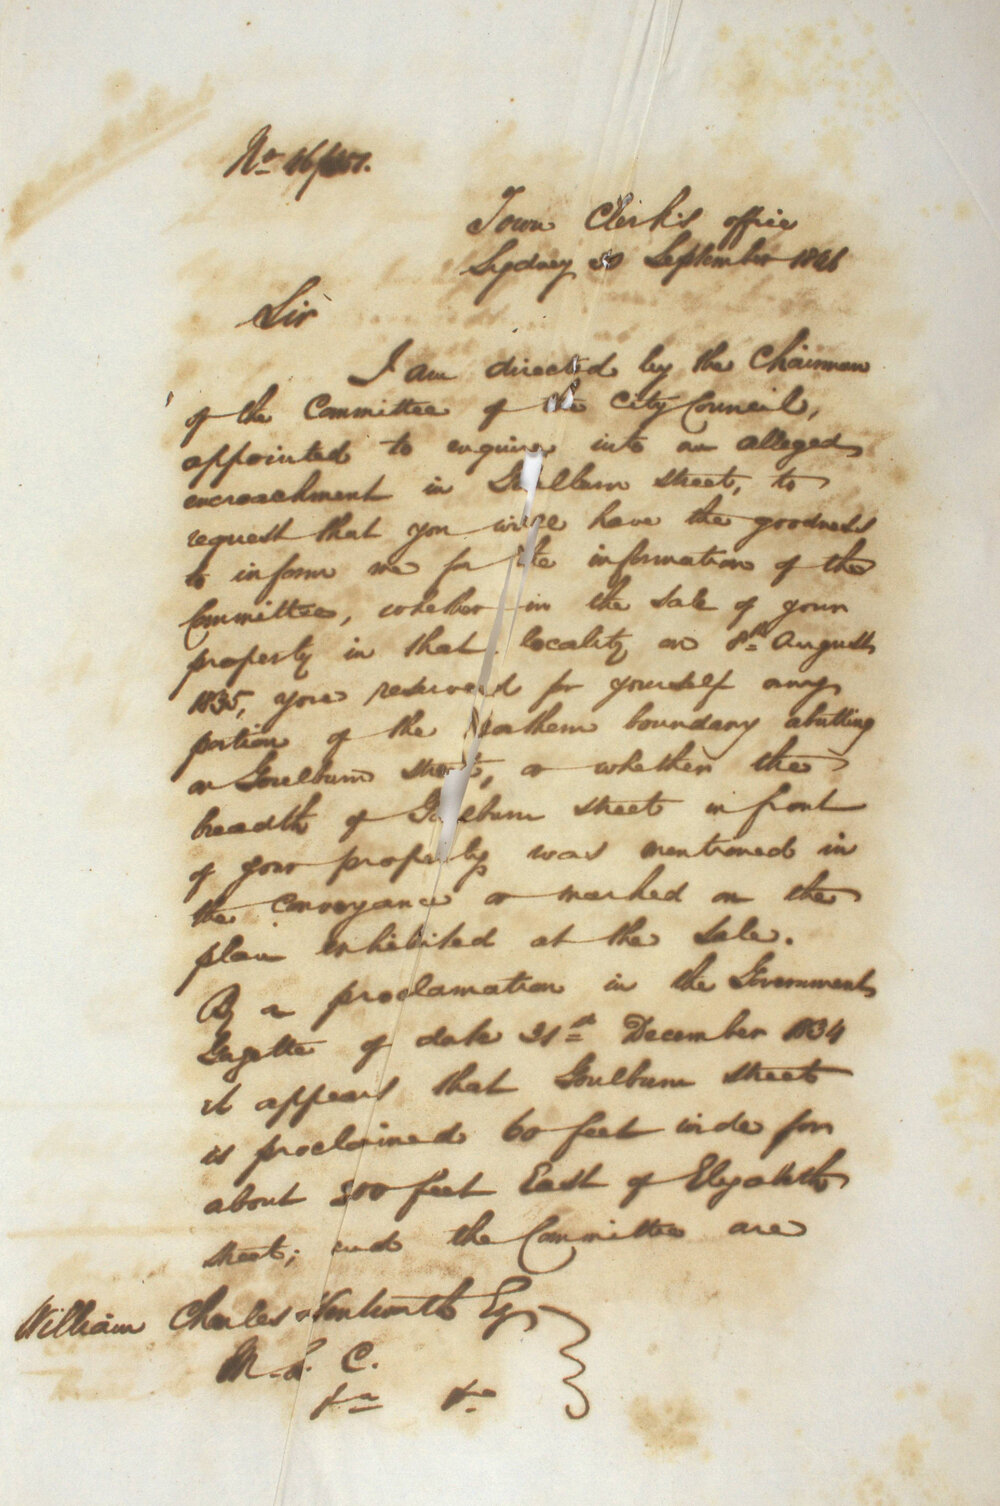 No
Town Clerk's office
Sydney September 1846
Sir
I am directed by the Chairman
of the Committee of the City Council,
appointed to enquire into an alleged
encroachment in Goulburn street, to
request that you will have the goodness
to inform me for the information of the
Committee, whether in the sale of your
property in that locality on 8th August
1835, you reserved for yourself any
portion of the Northern boundary abutting
on Goulburn street, or whether the
breadth of Goulburn street in front
of your property was mentioned in
the conveyance or marked on the
plan exhibited at the sale.
By a proclamation in the Government
Gazette of date 31st December 1834
it appears that Goulburn street
is proclaimed 60 feet wide for
about 300 feet East of Elizabeth
street; and the Committee are
William Charles Wentworth Esq
M. L. C.
&c &c